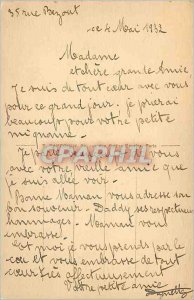 35 rue Bezout
ce 4 Mai 1932
Madame
et chère grande Amie
Je suis de tout cœur avec vous
pour ce grand jour. je prierai
beaucoup pour votre petite
mignonne.
Je vous
avec votre vieille amie que
je suis allée voir.
Bonne Maman vous adresse son
bon souvenir. Daddy ses respectueux
hommages. Maman vous
embrasse.
Et moi je vous prends par le
cou et vous embrasse de tout
cœur affectueusement
Votre petite amie
DELCAMPE